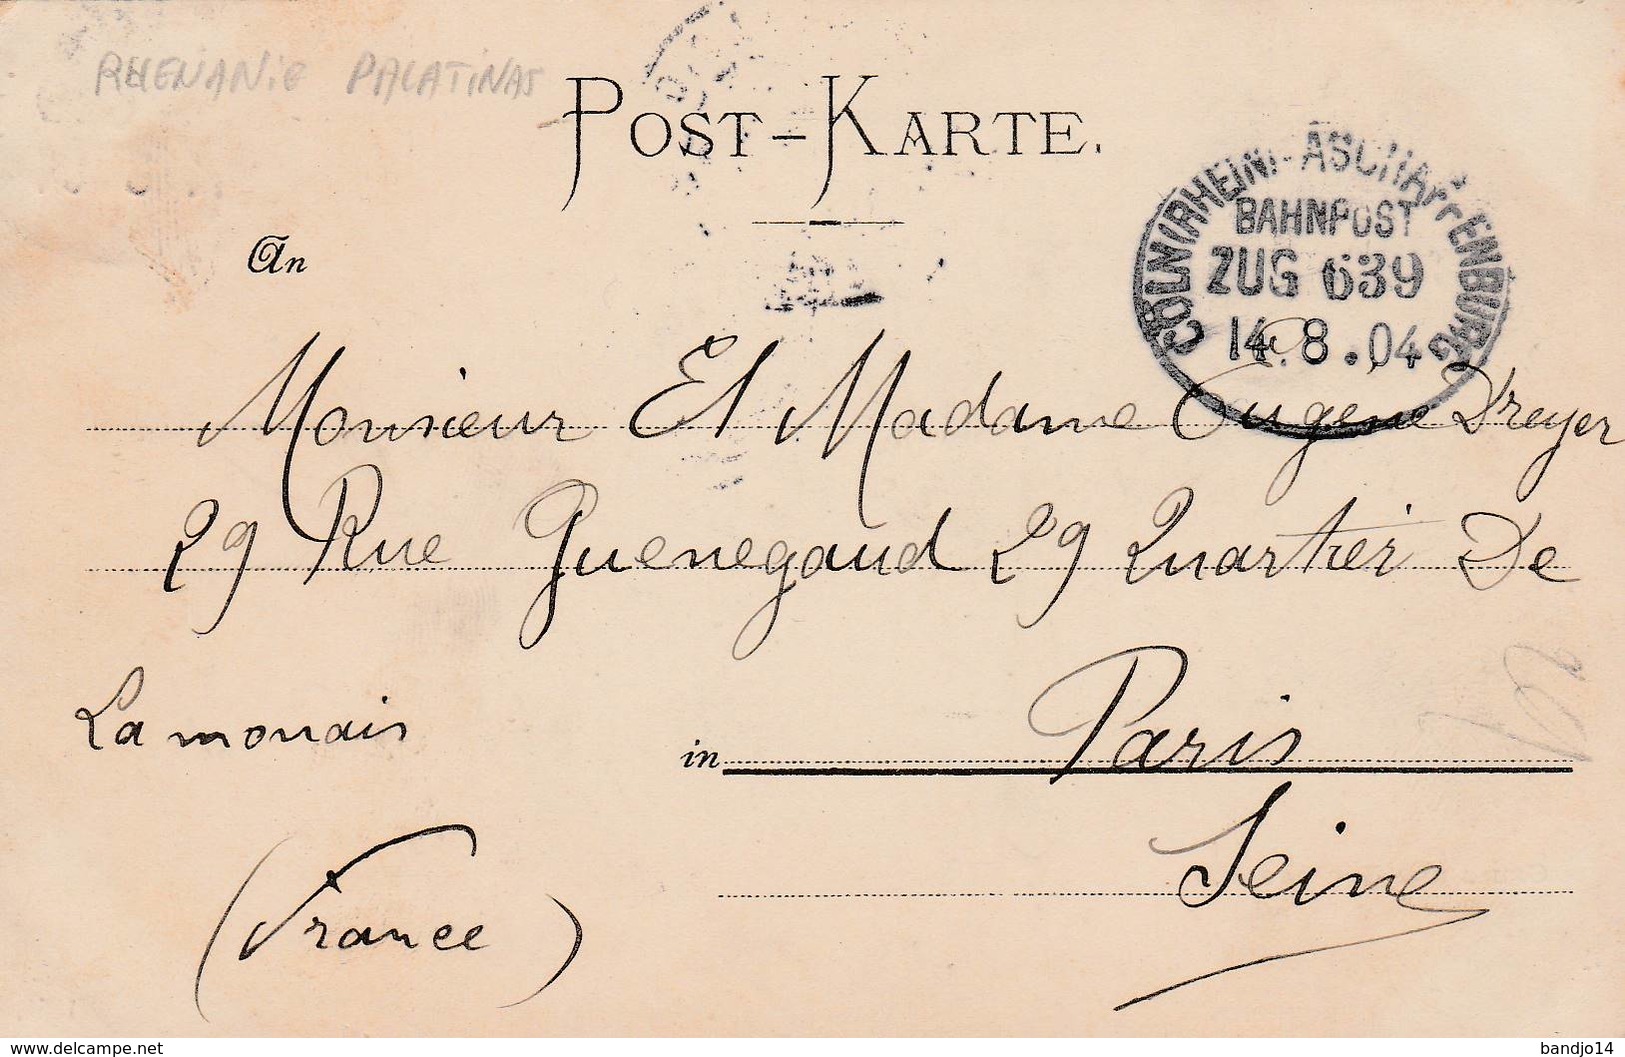 RHENANIE PALATINAS
POST-KARTE.
CÖLN (RHEIN)-ASCHAFFENBURG
BAHNPOST
ZUG 639
14.8.04
An
Monsieur Et Madame Eugène Dreyer
29 Rue Guenegaud 29 Quartier De
La monnais
in Paris
Seine
(France)
www.delcampe.net
bandjo14